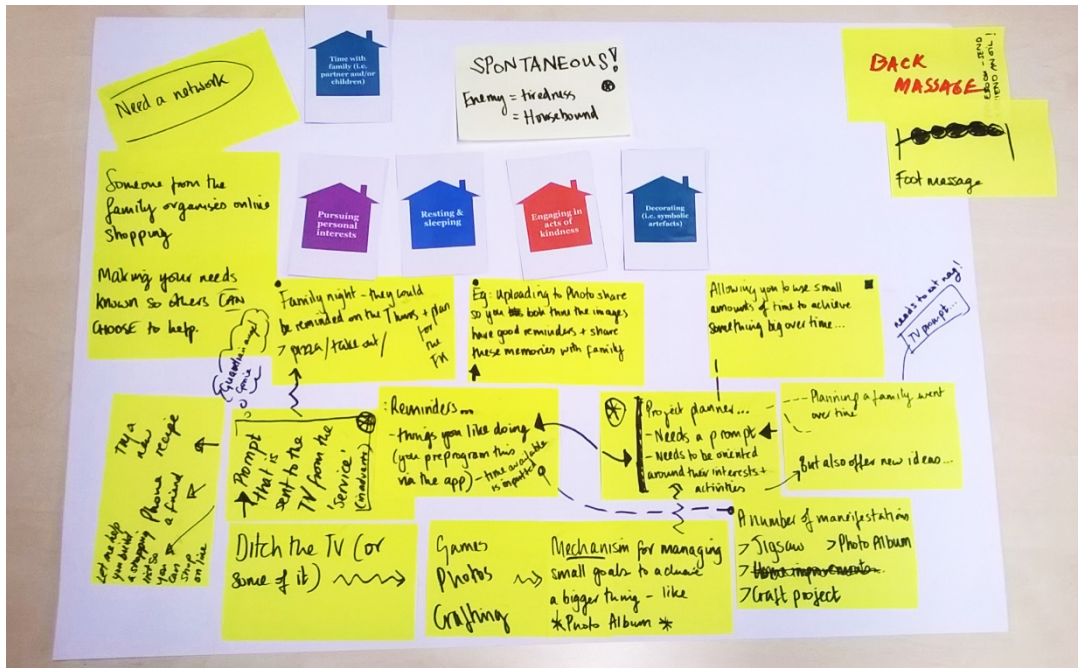 Need a network
Time with
family (i.e.
partner and/or
children)
SPONTANEOUS!
Enemy = tiredness
= Housebound
BACK
MASSAGE
Foot massage
Someone from the
family organises online
shopping
Making your needs
known so others CAN
CHOOSE to help.
Pursuing
personal
interests
Resting &
sleeping
Engaging in
acts of
kindness
Decorating
(i.e. symbolic
artefacts)
Family night - they could
be reminded on the Thurs + plan
for
the
Fri
> pizza/take out/
Eg: uploading to Photo share
so you both the images
have good reminders + share
these memories with family
Allowing you to use small
amounts of time to achieve
something big over time...
needs to not nag!
TV prompt...
Guardian angel
Genie
Try a
new recipe
Phone
a friend
Let me help
you
a shopping
list so
you can
shop
online
Prompt
that is
sent to the
TV from the
'service'
Reminders...
- things you like doing
(you preprogram this
via the app) - time available
is inputted
Project planner...
- Needs a prompt
- Needs to be oriented
around their interests +
activities
Planning a family went
over time
But also offer new ideas...
Ditch the TV (or
some of it)
Games
Photos
Crafting
Mechanism for managing
small goals to achieve
a bigger thing - like
*Photo Album*
A number of manifestation
> Jigsaw > Photo Album
> Home improvements...
> Craft project